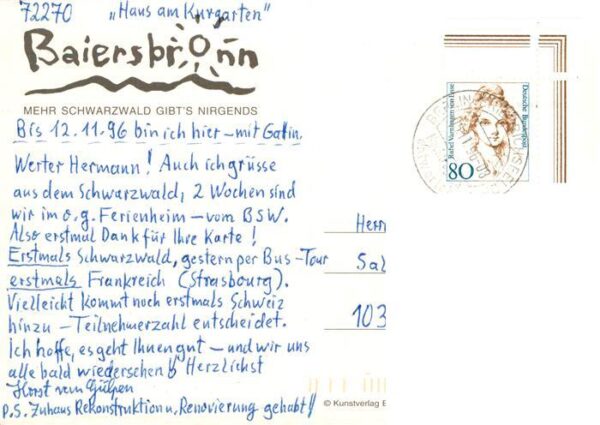 72270 „Haus am Kurgarten"
Baiersbronn
MEHR SCHWARZWALD GIBT'S NIRGENDS
Bis 12.11.96 bin ich hier – mit Gattin.
Werter Hermann! Auch ich grüsse
aus dem Schwarzwald, 2 Wochen sind
wir im o.g. Ferienheim – vom BSW.
Also erstmal Dank für Ihre Karte!
Erstmals Schwarzwald, gestern per Bus-Tour
erstmals Frankreich (Strasbourg).
Vielleicht kommt noch erstmals Schweiz
hinzu – Teilnehmerzahl entscheidet.
Ich hoffe, es geht Ihnen gut – und wir uns
alle bald wiedersehen! Herzlichst
Horst vom
P.S. Zuhaus Rekonstruktion u. Renovierung gehabt!
Deutsche Bundespost
Rahel Varnhagen von Ense
80
Herrn
Sal
103
© Kunstverlag E